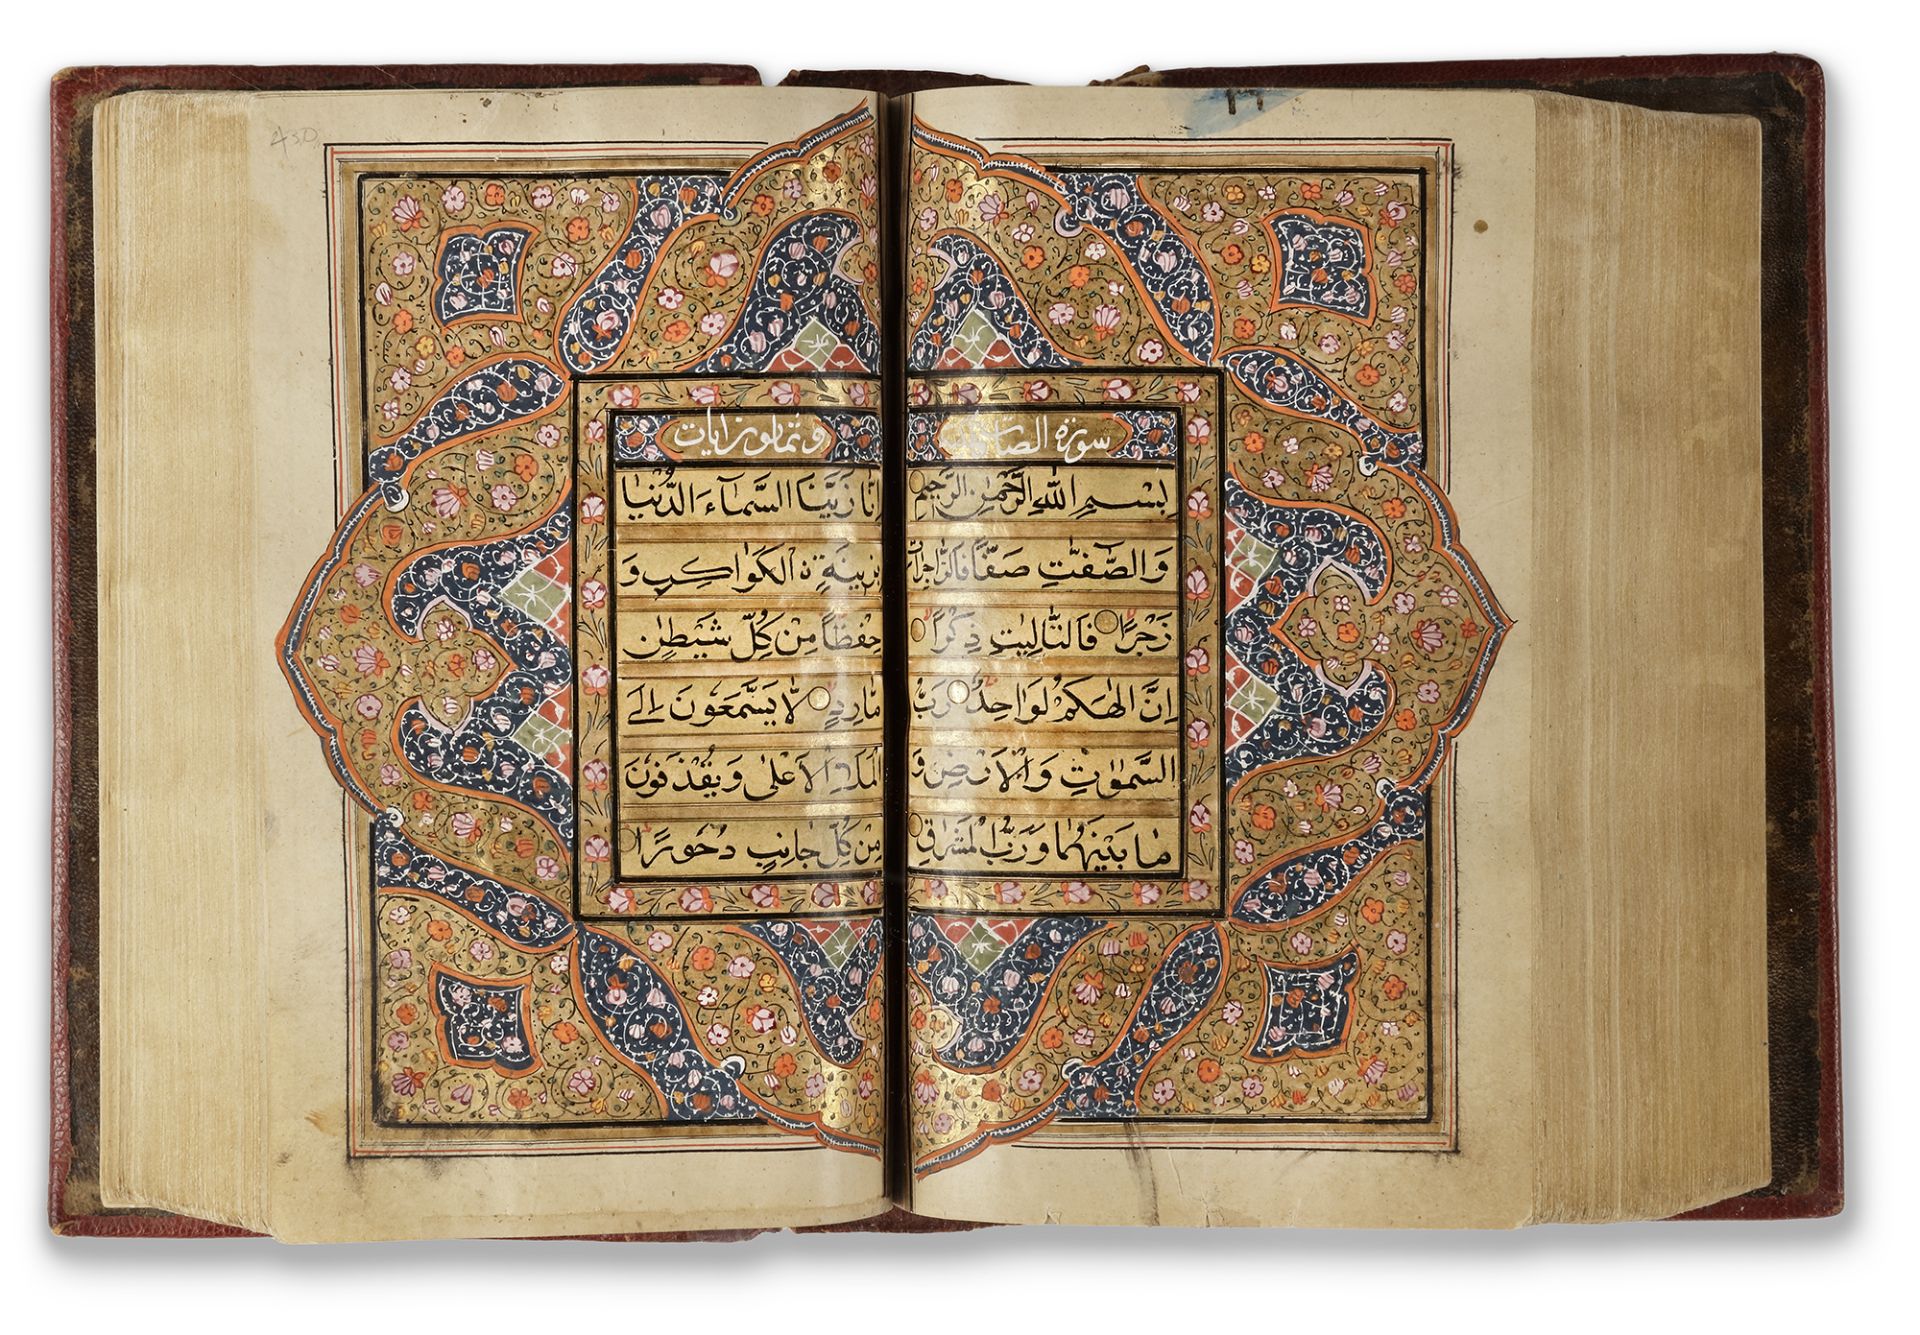 سورة الصافات
بِسْمِ اللهِ الرَّحْمٰنِ الرَّحِيْمِ
وَالصّٰفّٰتِ صَفًّا فَالزّٰجِرٰتِ
زَجْرًا فَالتّٰلِيٰتِ ذِكْرًا
اِنَّ اِلٰهَكُمْ لَوَاحِدٌ رَبُّ
السَّمٰوٰتِ وَالْاَرْضِ وَ
مَا بَيْنَهُمَا وَرَبُّ الْمَشٰرِقِ
وثمانون ايات
اِنَّا زَيَّنَّا السَّمَآءَ الدُّنْيَا
بِزِيْنَةِ نِ الْكَوَاكِبِ وَ
حِفْظًا مِنْ كُلِّ شَيْطٰنٍ
مَارِدٍ لَا يَسَّمَّعُوْنَ اِلَى
الْمَلَاِ الْاَعْلٰى وَيُقْذَفُوْنَ
مِنْ كُلِّ جَانِبٍ دُحُوْرًا